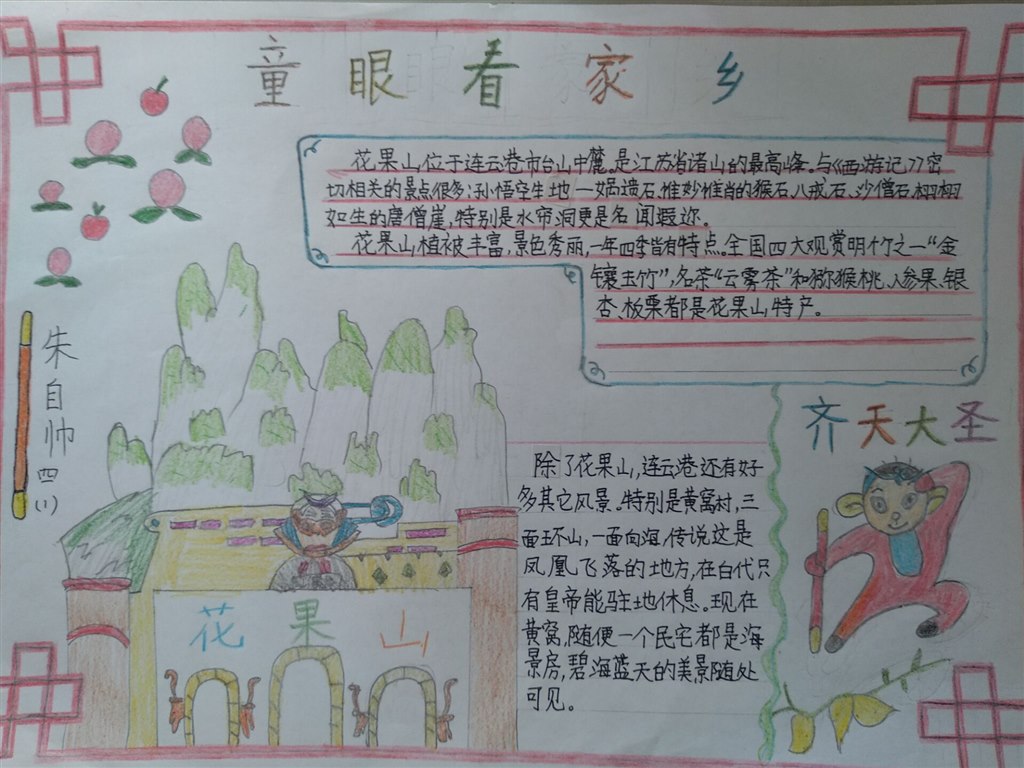 童眼看家乡
花果山位于连云巷市台山中麓。是江苏省诸山的最高峰。与《西游记》密
切相关的景点很多:孙悟空生地一娲遗石、惟妙惟肖的猴石、八戒石、沙僧石、栩栩
如生的唐僧崖,特别是水帘洞更是名闻遐迩。
花果山植被丰富,景色秀丽,一年四季皆有特点。全国四大观赏明竹之一“金
镶玉竹”,名茶“云雾茶”和猕猴桃、人参果、银
杏、板栗都是花果山特产。
朱自帅
四(1)
齐天大圣
除了花果山,连云巷还有好
多其它风景。特别是黄窝村,三
面环山,一面向海,传说这是
凤凰飞落的地方,在古代只
有皇帝能驻地休息。现在
黄窝,随便一个民宅都是海
景房,碧海蓝天的美景随处
可见。
花果山